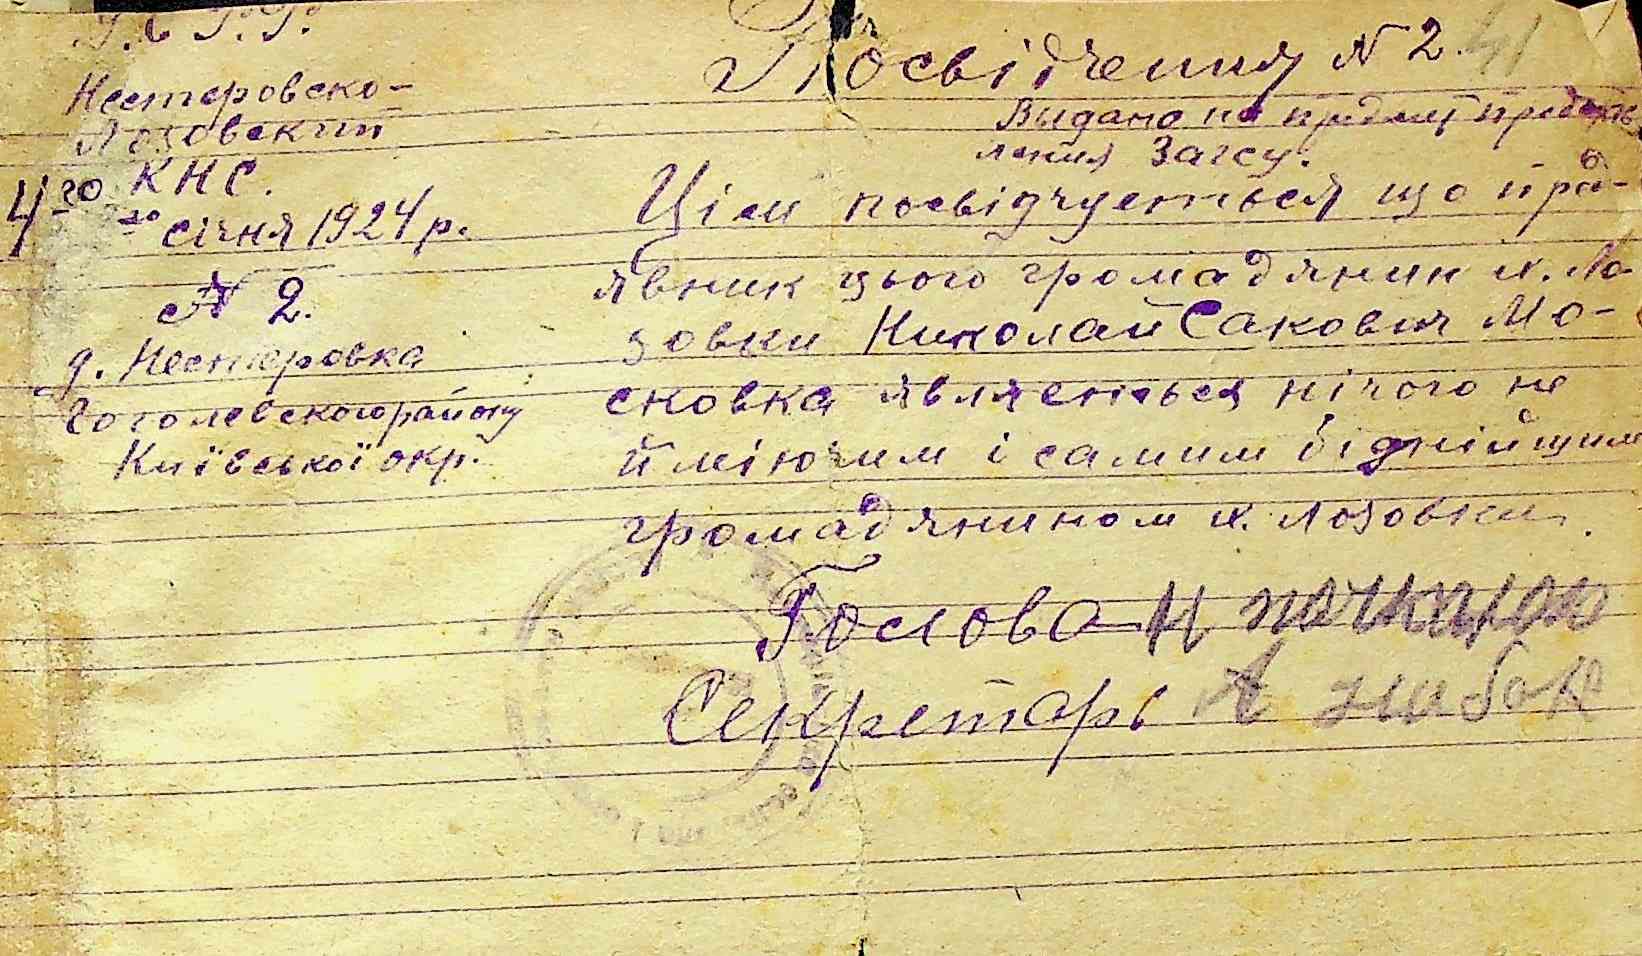 У.С.Р.Р.
Нестеровско-
Лозовский
КНС.
4го січня 1924 р.
N 2.
д. Нестеровка
Гоголевского району
Київської окр.
Посвідчення N 2. 41
Выдано на предмет предъяв-
ления Загсу.
Цім посвідчується що про-
явник цього громадянин х. Ло-
зовки Николай Сакович Мо-
сковка являеться нічого не
йміючим і самим біднійшим
громадянином х. Лозовки.
Голова Н
Секретарь А